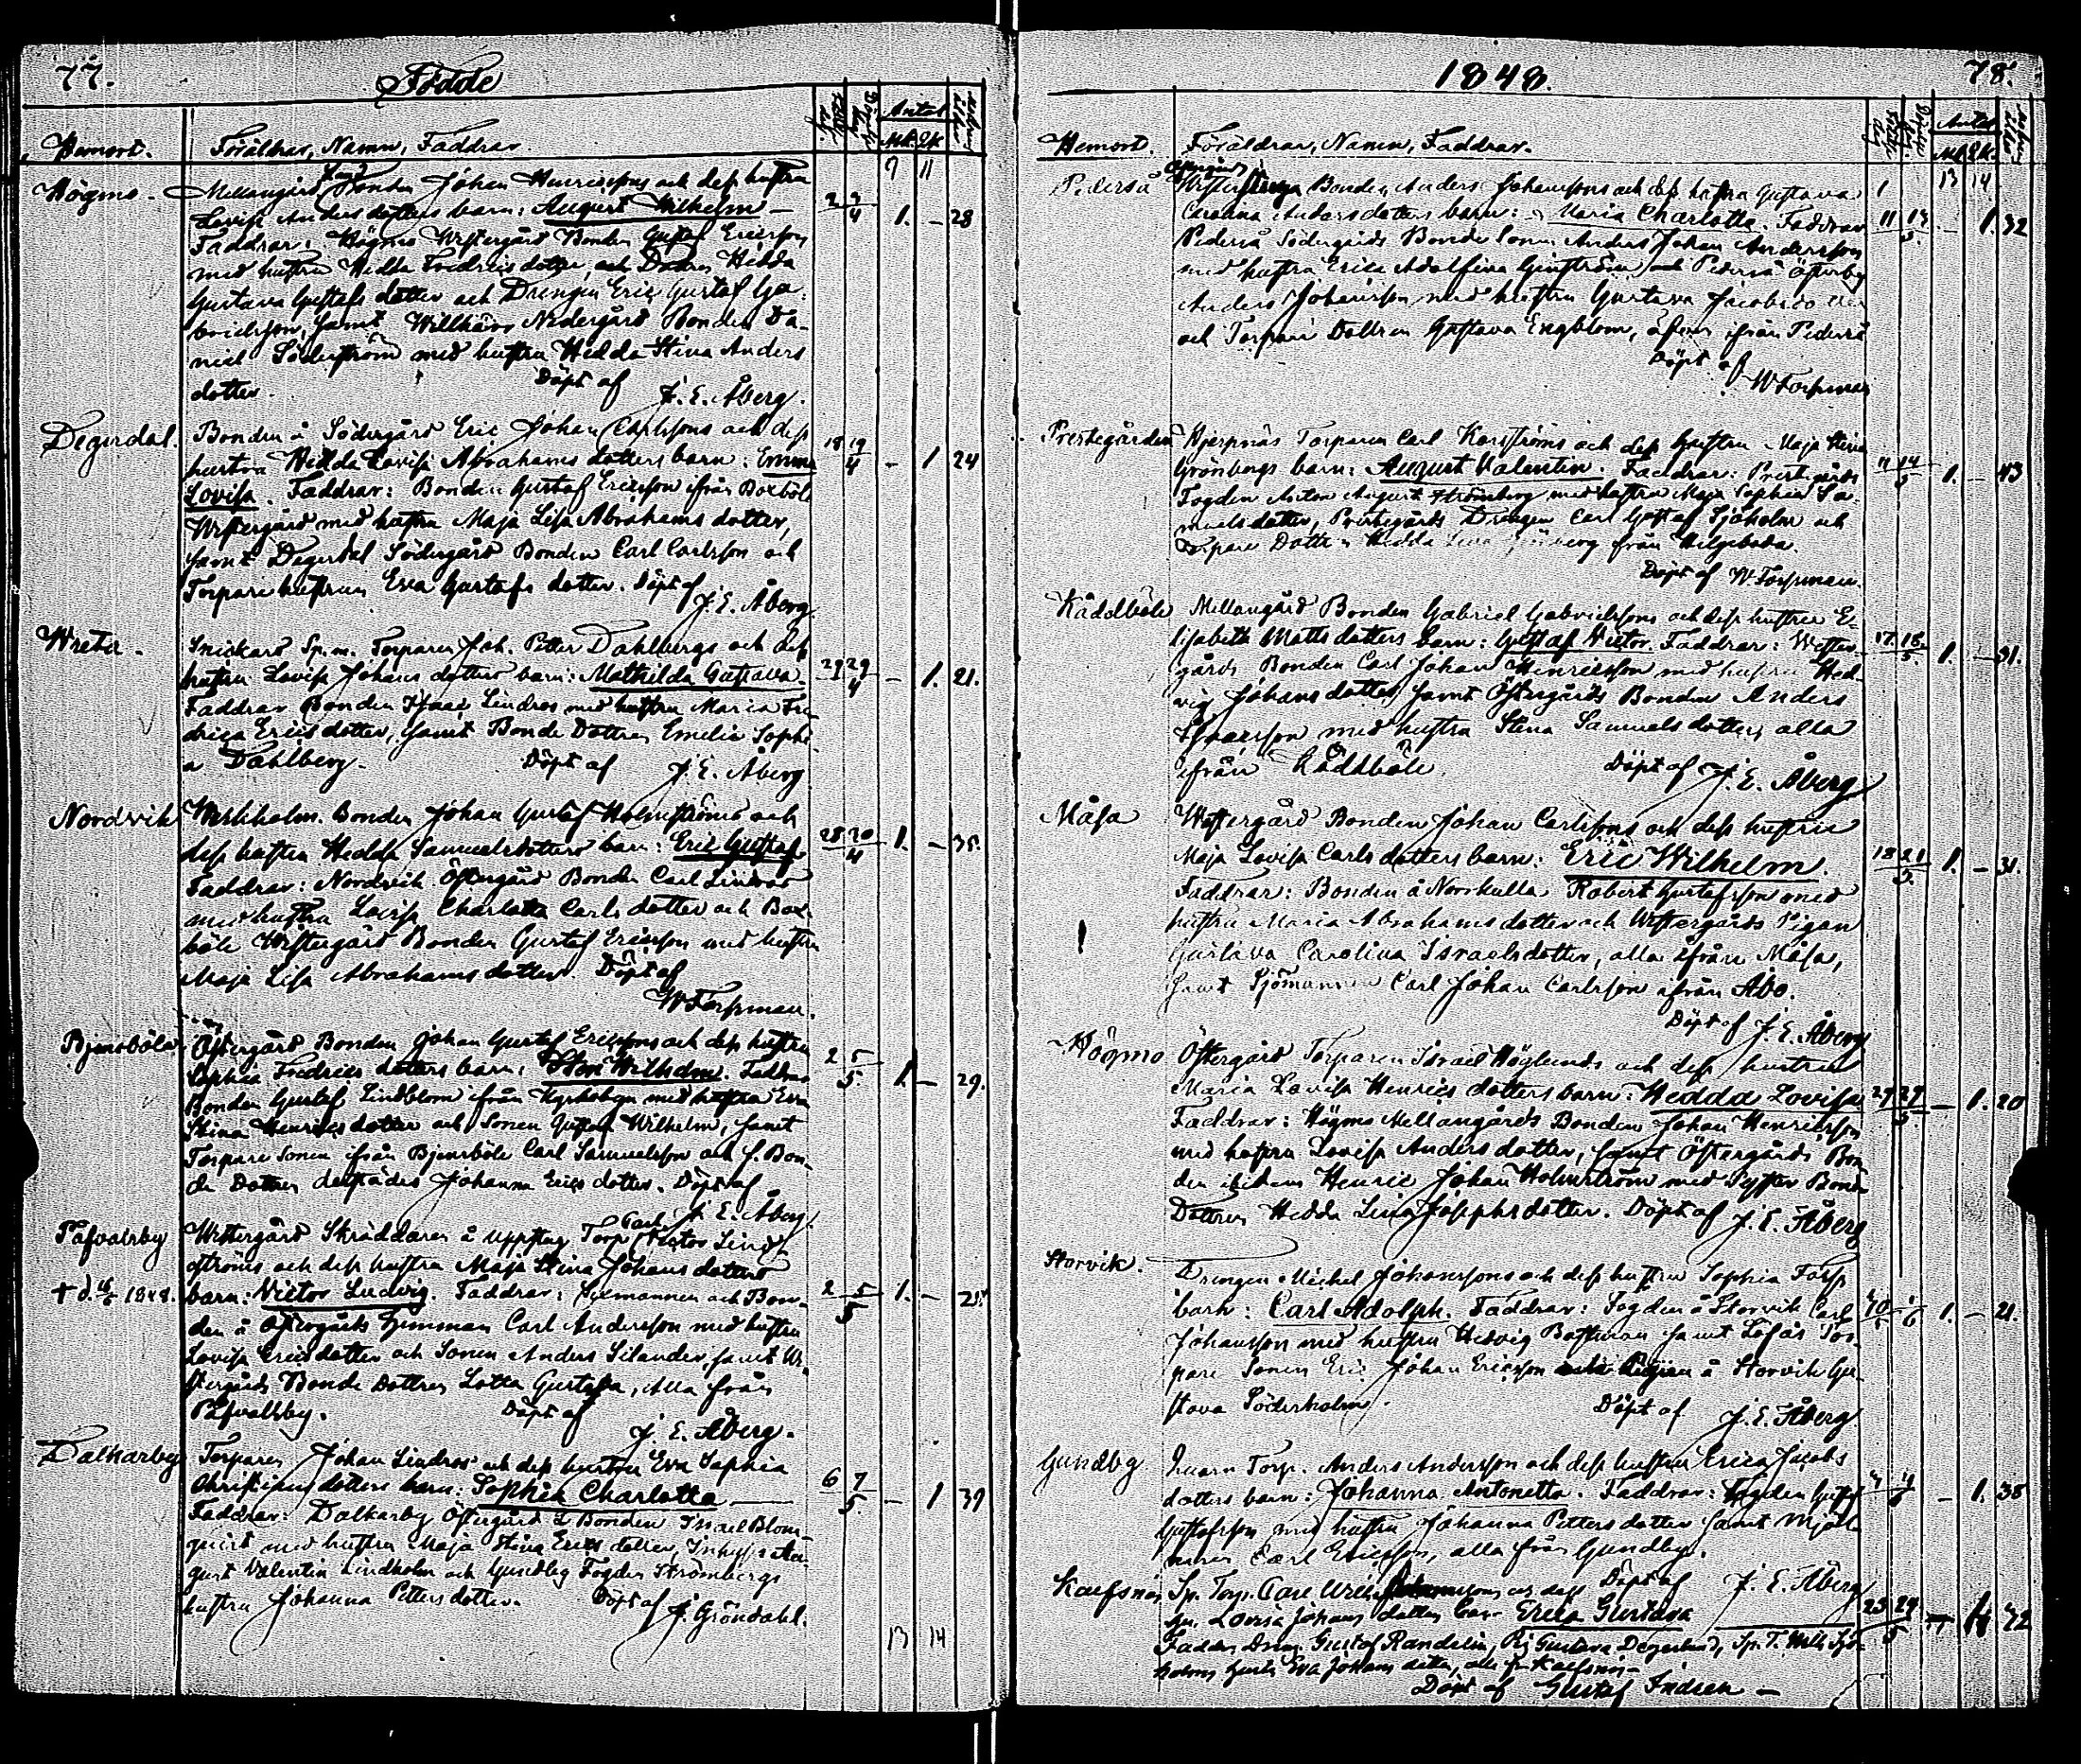 77. Födde
Hemort. Föräldrar, Namn, Faddrar. Antal
Mk. Qk.
9 11
Högmo. Mellangård Bonden Johan Henricssons och dess hustru
Lovisa Andersdotters barn: August Wilhelm — 4 1. – 28
Faddrar: Högmo Westergård Bonden Gustaf Ericsson
med hustru Hedda Fredricsdotter, och Hedda
Gustava Gustafs dotter och Drengen Eric Gustaf Ga-
brielsson, samt Nedergård Bonden Da-
niel Söderström med hustru Hedda Stina Anders
dotter. Döpt af J. E. Åberg.
Degerdal. Bonden å Södergård Eric Johan Carlssons och dess
hustru Hedda Lovisa Abrahams dotters barn: Emma 18 19/4 – 1 24
Lovisa. Faddrar: Bonden Gustaf Ericsson ifrån Boxböle
Westergård med hustru Maja Lisa Abrahams dotter,
samt Degerdal Södergård Bonden Carl Carlsson och
Torpare hustrun Eva Gustafs dotter. Döpt af
J. E. Åberg.
Wreta. Snickare Sp. m. Torparen Joh. Petter Dahlbergs och dess
hustru Lovisa Johans dotters barn: Mathilda Gustava. 29/4 – 1. 21.
Faddrar Bonden Isaac Lindros med hustru Maria Fre-
drica Ericsdotter, samt Bonde Dottren Emelie Sophi-
a Dahlberg. Döpt af J. E. Åberg
Nordvik Bonden Johan Gustaf Holmströms och
dess hustru Hedda Samuelsdotters barn: Eric Gustaf 28 30/4 1. – 35.
Faddrar: Nordvik Östergård Bonden Carl Lindros
med hustru Lovisa Charlotta Carls dotter och Box-
böle Westergård Bonden Gustaf Ericsson med hustru
Maja Lisa Abrahams dotter. Döpt af
W Forsman.
Bjensböle. Östergård Bonden Johan Gustaf Ericssons och dess hustru
Sophia Fredrics dotters barn: Wilhelm. Faddrar 2 5/5. 1. – 29.
Bonden Gustaf Lindblom ifrån Kyrkobyn med hustru Eva
Stina Henrics dotter och Sonen Gustaf Wilhelm, samt
Torpare Sonen ifrån Bjensböle Carl Samuelsson och f. Bon-
de Dottren derstädes Johanna Erics dotter. Döpt af
J. E. Åberg.
Påfvalsby Westergård Skräddaren å Torp Carl Victor Lind-
ströms och dess hustru Maja Stina Johans dotters
† d. 1848. barn: Victor Ludvig. Faddrar: och Bon- 2 5/5 1. –
den å Östergårds hemman Carl Andersson med hustru
Lovisa Ericsdotter och Sonen Anders Silander, samt We-
stergårds Bonde Dottren Lotta Gustafva, Alla från
Påfvalsby. Döpt af
J. E. Åberg.
Dalkarby Torparen Johan Lindros och dess hustru Eva Sophia
Christiernsdotters barn: Sophia Charlotta — 6 7/5. – 1
Faddrar: Dalkarby Östergård Bonden Israel Blom-
quist med hustru Maja Stina Erics dotter, Au-
gust Valentin Lindholm och Gundby Fogden Strömbergs
hustru Johanna Petters dotter. Döpt af J. Gröndahl.
13 14
1848. 78.
Hemort. Föräldrar, Namn, Faddrar. Antal
Mk. Qk.
13 14
Pederså Bonden Anders Johanssons och dess hustru Gustava
Carolina Andersdotters barn: Maria Charlotta. Faddrar 11 13/5. – 1. 32
Pederså Södergårds Bonde Sonen Anders Johan Andersson
med hustru Erica Adolfina och Pederså Österby
Anders Johansson med hustru Gustava Jacobsdotter
och Torpare Dottren Gustava Engblom, äfven ifrån Pederså
Döpt af
W Forsman
Prestegården Torparen Carl Korströms och dess hustru Maja Stina
Grönbergs barn: August Valentin. Faddrar: Prestgårds 11 14/5 1. – 43
Fogden Anton August Strömberg med hustru Maja Sophia Sa-
muels dotter, Prestegårds Drengen Carl Gustaf Sjöholm och
Torpare Dottren Hedda från Helgeboda.
Döpt af W Forsman.
Råddböle Mellangård Bonden Gabriel Gabrielssons och dess hustru E-
lisabeth Mattsdotters barn: Gustaf Victor. Faddrar: Wester- 17 18/5 1. – 31.
gårds Bonden Carl Johan Henricsson med hustru Hed-
vig Johansdotter, samt Östergårds Bonden Anders
Isaacsson med hustru Stina Samuels dotter, alla
ifrån Råddböle. Döpt af J. E. Åberg
Måsa Westergård Bonden Johan Carlssons och dess hustru
Maja Lovisa Carls dotters barn: Eric Wilhelm. 18 21/5. 1. – 31.
Faddrar: Bonden å Norrkulla Robert Gustafsson med
hustru Maria Abrahams dotter och Westergårds Pigan
Gustava Carolina Israelsdotter, alla ifrån Måsa,
samt Sjömannen Carl Johan Carlsson ifrån Åbo.
Döpt af J. E. Åberg
Högmo Östergård Torparen Israel Höglunds och dess hustru
Maria Lovisa Henrics dotters barn: Hedda Lovisa 27 29/5. – 1. 20
Faddrar: Högmo Mellangårds Bonden Johan Henricsson
med hustru Lovisa Anders dotter, samt Östergårds Bon-
den ibidem Henric Johan Holmström med Syster Bonde
Dottren Hedda Lina Josephsdotter. Döpt af J. E. Åberg
Storvik. Drengen Michel Johanssons och dess hustru Sophia Fors
barn: Carl Adolph. Faddrar: Fogden å Storvik Carl 1. – 21.
Johansson med hustru Hedvig Bastman samt Löfås Tor-
pare Sonen Eric Johan Ericsson och Pigan å Storvik Gu-
stava Söderholm. Döpt af J. E. Åberg
Gundby Torp. Anders Andersson och dess hustru Erica Jacobs
dotters barn: Johanna Antonetta. Faddrar: Fogden Gustaf – 1. 38
Gustafsson med hustru Johanna Petters dotter samt Mjöl-
naren Carl Ericsson, alla från Gundby.
Döpt af J. E. Åberg
Kaefsnäs Sp. Torp. Carl och dess
hu. Lovisa Johans dotters barn Erica Gustava 23 29/5
Faddr. Dren. Gustaf Randelin, Pig. Gustava Degerlund, Sp. T. Sjö-
holms hustr. Eva Johans dotter, alla fr. Kaefsnäs –
Döpt af Gustaf Indren —